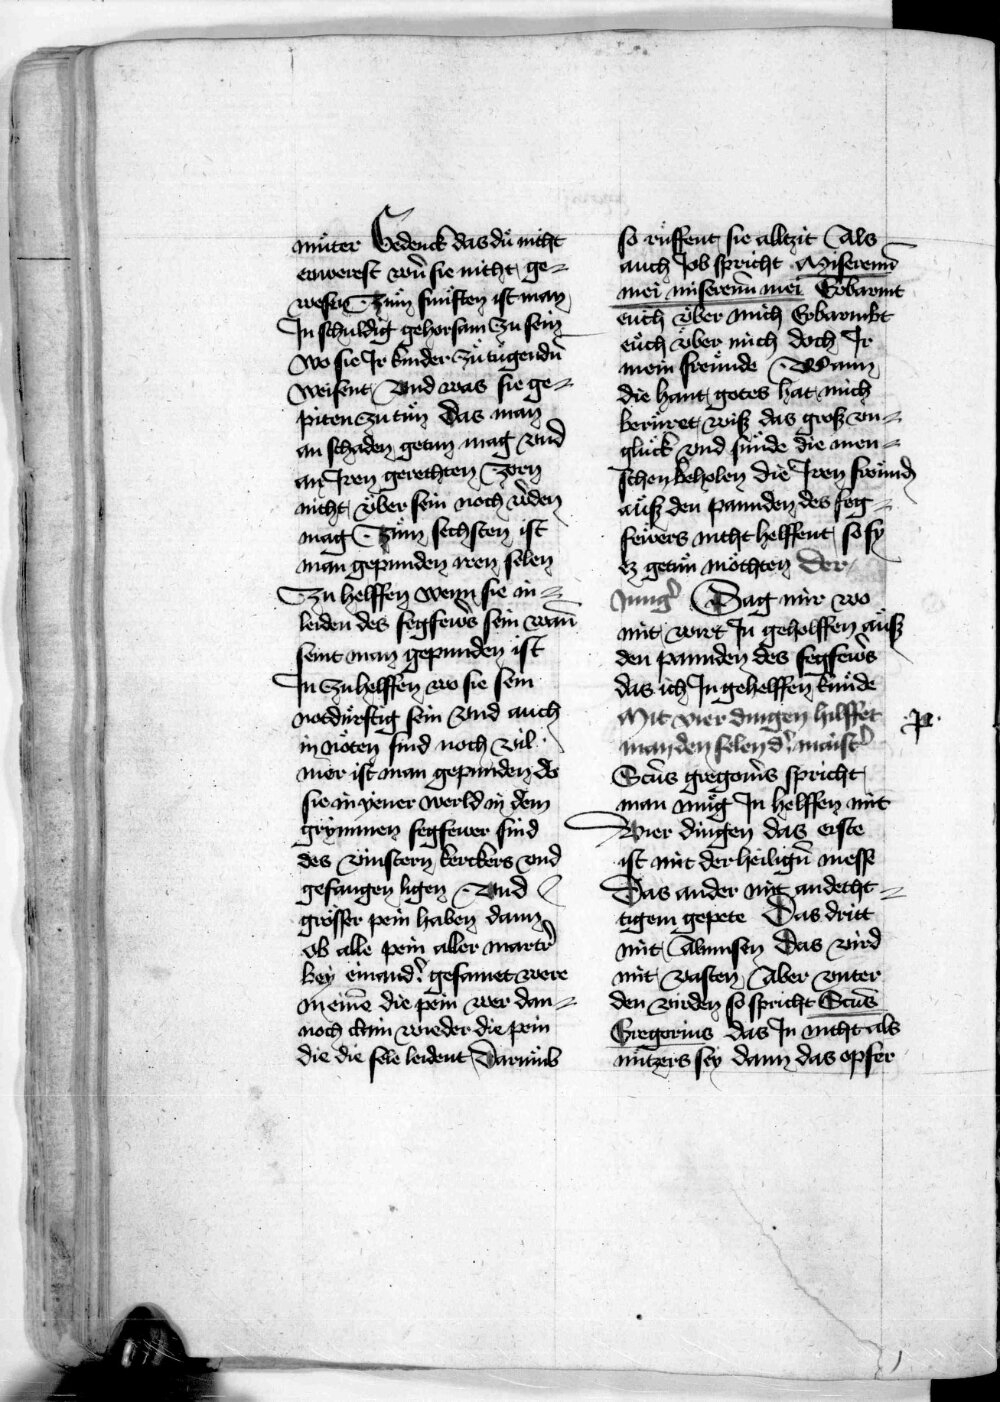 muͤter Gedenck das duͤ nicht
enwerest wer̄ sie nicht ge=
wesen Zum funfften ist man
In schuldig gehorsam zu sein
wo sie Ir kinder zu tugendn̄
weisent Vnd was sie ge=
piten zu tun das man
an schaden getun mag vnd
an Iren gerechten Zorn
nicht vͤber sein noch reden
mag Zum sechsten ist
man gepunden iren selen
Zu helffen wenn sie in=
leiden des fegfewrs sein wan̄
seint man gepunden ist
In zu helffen wo sie sein
notduͤrftig sein vnd auch
in noͤten sind noch vil
mer ist man gepunden do
sie in yener werld in dem
grymmen fegfewer sind
des vinstern kerckers vnd
gefangen ligen Vnd
groͤsser pein haben dann
ob alle pein aller martrer
bey einander gesamet were
in eine die pein wer dan=
noch clein wieder die pein
die die sele leident Darumb
so ruͤffent sie alltzit Als
auch Job spricht Miseremī
mei miseremī mei Erbarmt
euch vͤber mich Erbarmbt
euch vͤber mich doch Ir
mein freuͤnde Wann
die hant gotes hat mich
beruͤret wiß das groß vn=
gluͤck vnd suͤnde die men=
schen beholen die Iren freuͤnden
auß den pannden des feg=
fewers nicht helffent so sy
ez getun moͤchten der
Jungͬ Sag mir wo
mit wirt In geholffen auß
den pannden des fegfewrs
das ich In gehelffen kuͤnde
Mit vier dingen hilffet
man den selen dͬ maistͬ
Scūs gregoriūs spricht
man muͤg In helffen mit
Vier dingen das erste
ist mit der heiligen̄ messe
Das ander mit andecht=
tigem gepete Das dritt
mit Almusen Das vird
mit vasten Aber vnter
den virden so spricht Scūs
Gregorius das In nicht als
nutzers sey dann das opfer